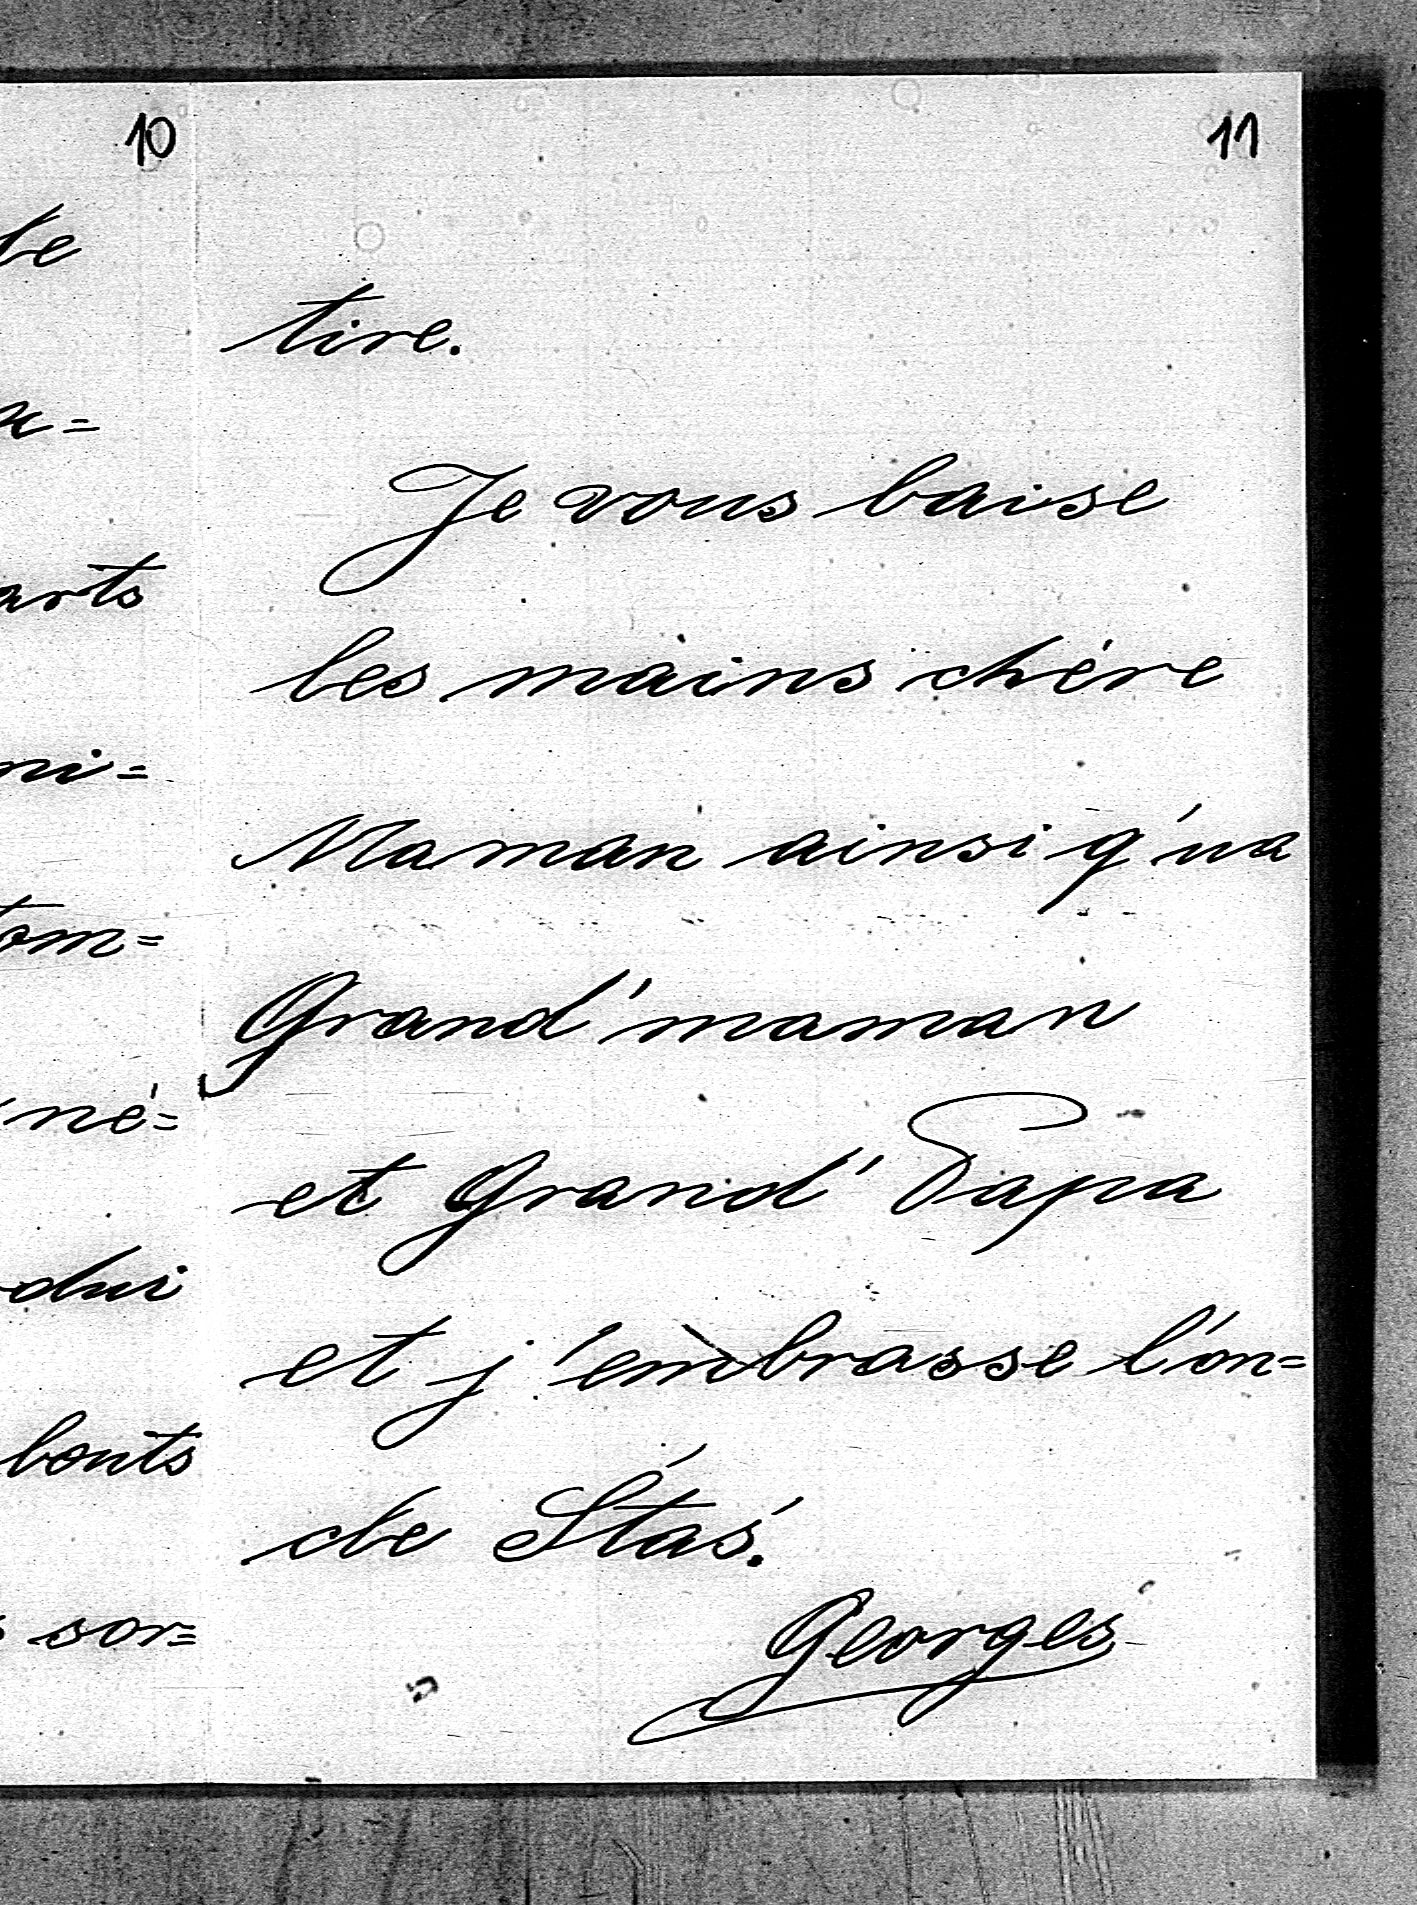 10
te
arts
ni=
tom=
né=
dui
bouts
sor=
11
tire.
Je vous baise
les mains chére
Maman ainsi q'ua
Grand'maman
et Grand' Papa
et j'embrasse l'on=
cle Staś.
Georges